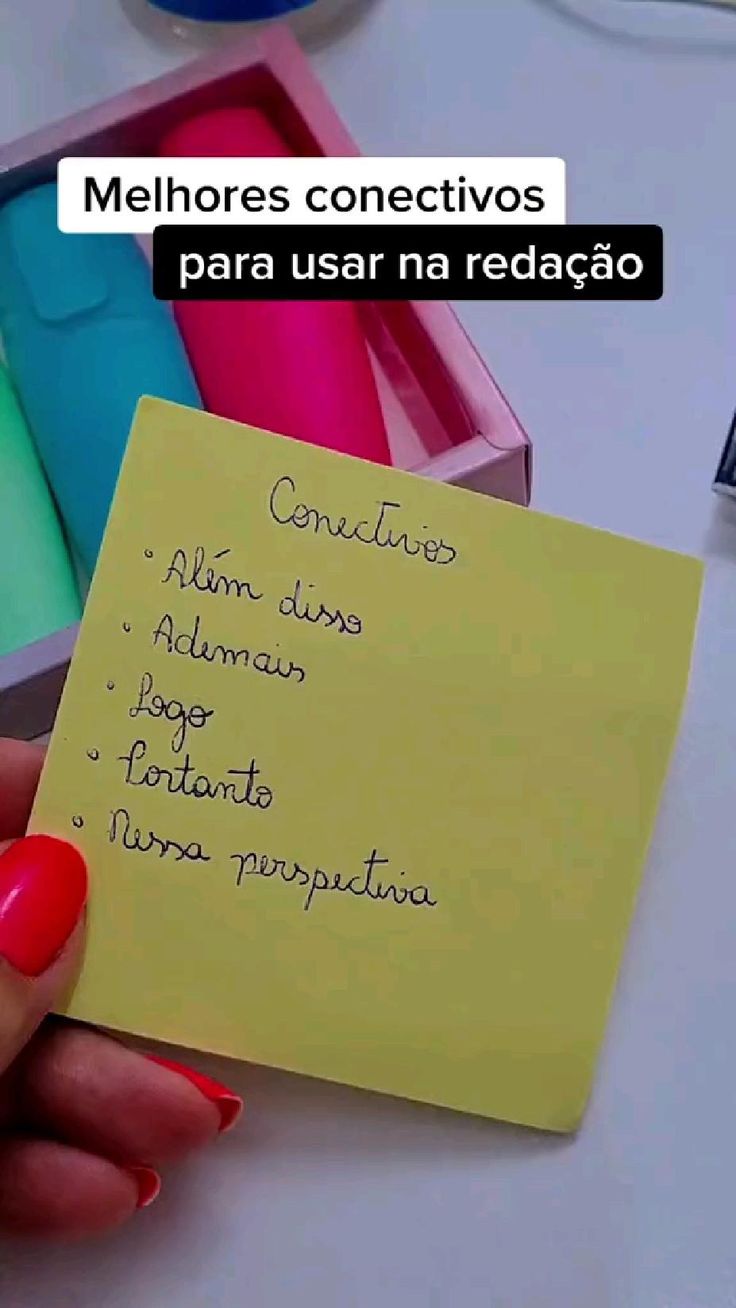 Melhores conectivos
para usar na redação
Conectivos
• Além disso
• Ademais
• Logo
• Portanto
• Nessa perspectiva